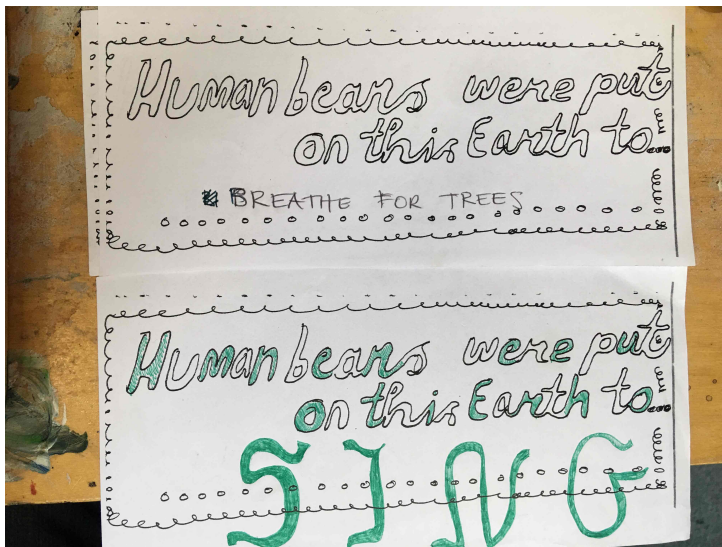 Human bears were put
on this Earth to...
BREATHE FOR TREES
Human bears were put
on this Earth to...
SING